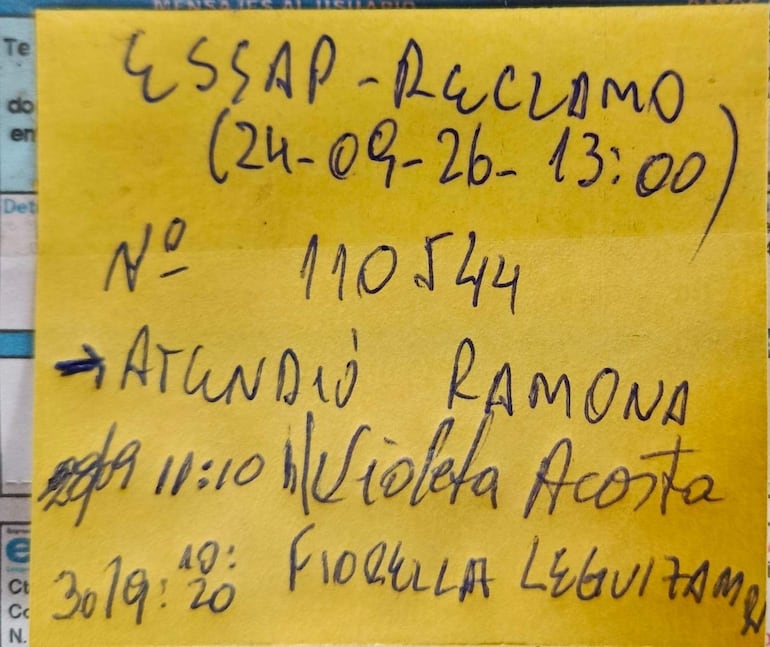 MENSAJES AL USUARIO
Te
do
en
Det
ESSAP - RECLAMO
(24-09-26- 13:00)
Nº 110544
→ ATENDIÓ RAMONA
/09 11:10 Violeta Acosta
30/9: 10:20 FIORELLA LEGUIZAMR
e
Ct
Cc
N.